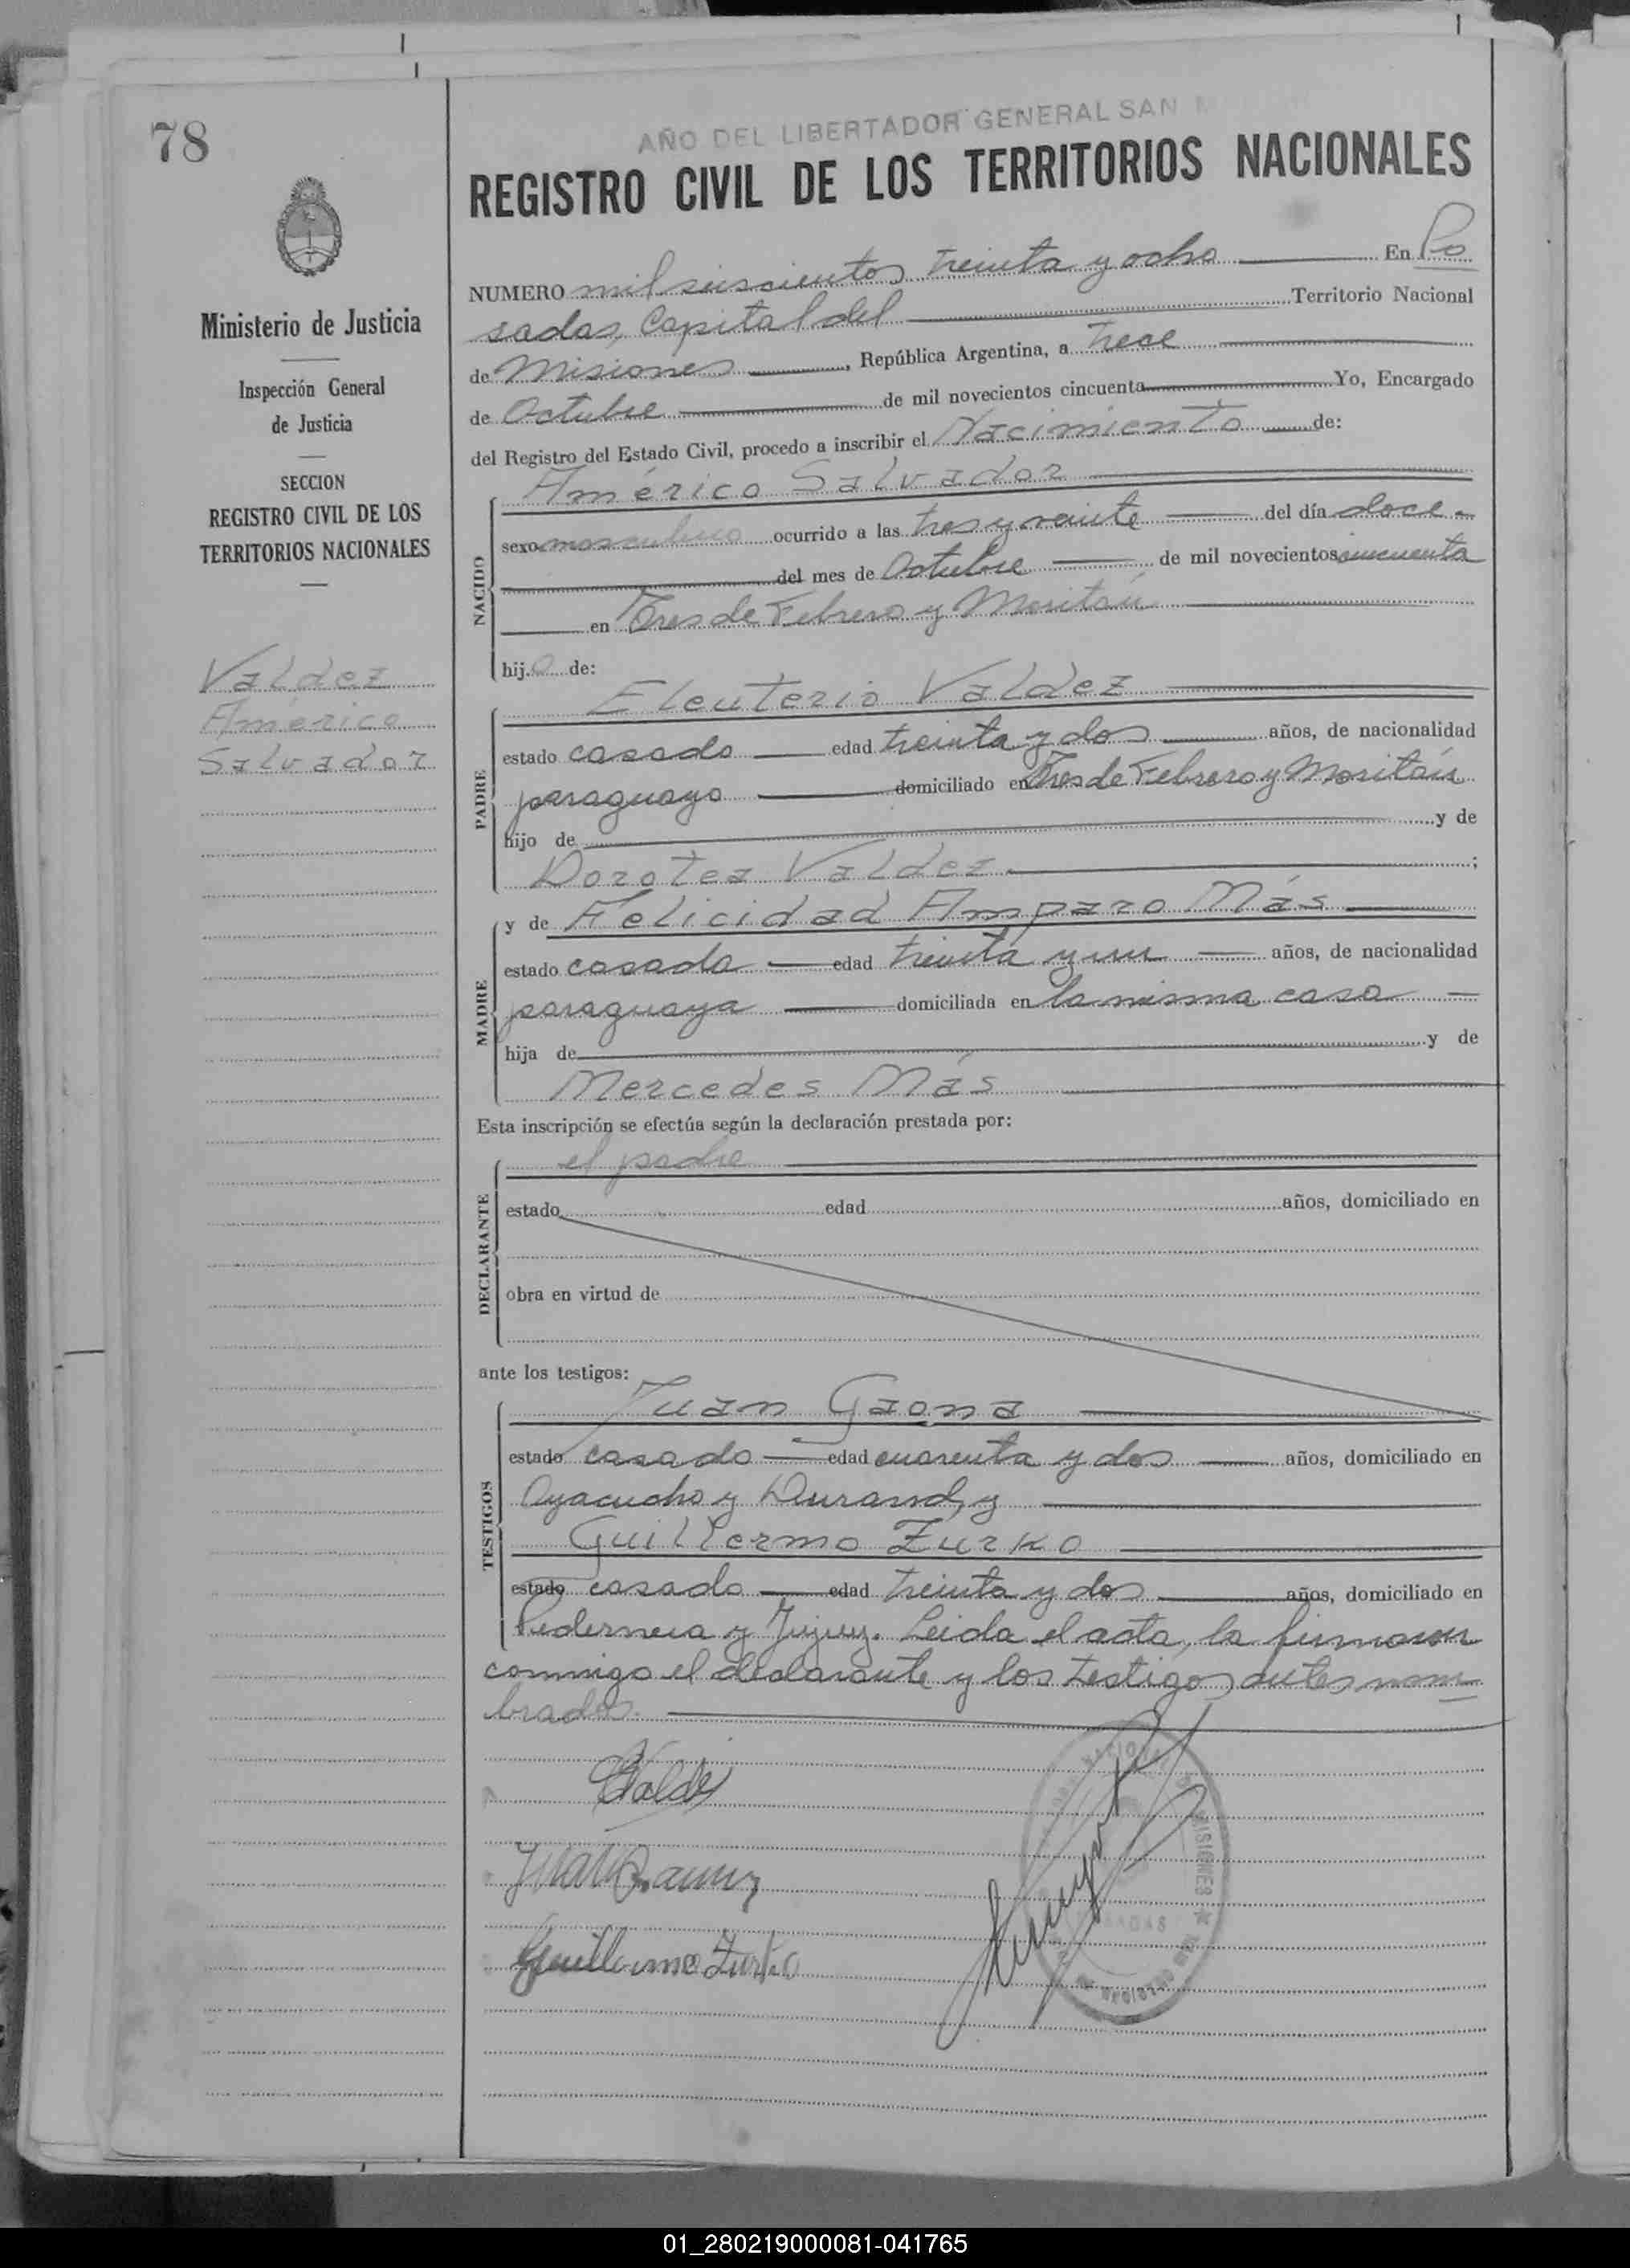 78
AÑO DEL LIBERTADOR GENERAL SAN
REGISTRO CIVIL DE LOS TERRITORIOS NACIONALES
Ministerio de Justicia
Inspección General
de Justicia
SECCION
REGISTRO CIVIL DE LOS
TERRITORIOS NACIONALES
Valdez
Américo
Salvador
NUMERO mil seiscientos treinta y ocho En Po
sadas, Capital del Territorio Nacional
de Misiones, República Argentina, a trece
de Octubre de mil novecientos cincuenta Yo, Encargado
del Registro del Estado Civil, procedo a inscribir el Nacimiento de:
NACIDO
Américo Salvador
sexo masculino ocurrido a las tres y veinte del día doce
del mes de Octubre de mil novecientos cincuenta
en Tres de Febrero y Moritán
hijo de:
PADRE
Eleuterio Valdez
estado casado edad treinta y dos años, de nacionalidad
paraguayo domiciliado en Tres de Febrero y Moritán
hijo de y de
Dorotea Valdez ;
MADRE
y de Felicidad Amparo Más
estado casada edad treinta y un años, de nacionalidad
paraguaya domiciliada en la misma casa
hija de y de
Mercedes Más
Esta inscripción se efectúa según la declaración prestada por:
DECLARANTE
el padre
estado edad años, domiciliado en
obra en virtud de
ante los testigos:
TESTIGOS
Juan Gaona
estado casado edad cuarenta y dos años, domiciliado en
Ayacucho y Durand, y
Guillermo Zurko
estado casado edad treinta y dos años, domiciliado en
Pedernera y Jujuy. Leida el acta, la firmaron
conmigo el declarante y los testigos antes nom
brados.
EValdez
Juan Gaona
MISIONES
Guillermo Zurko
01_280219000081-041765